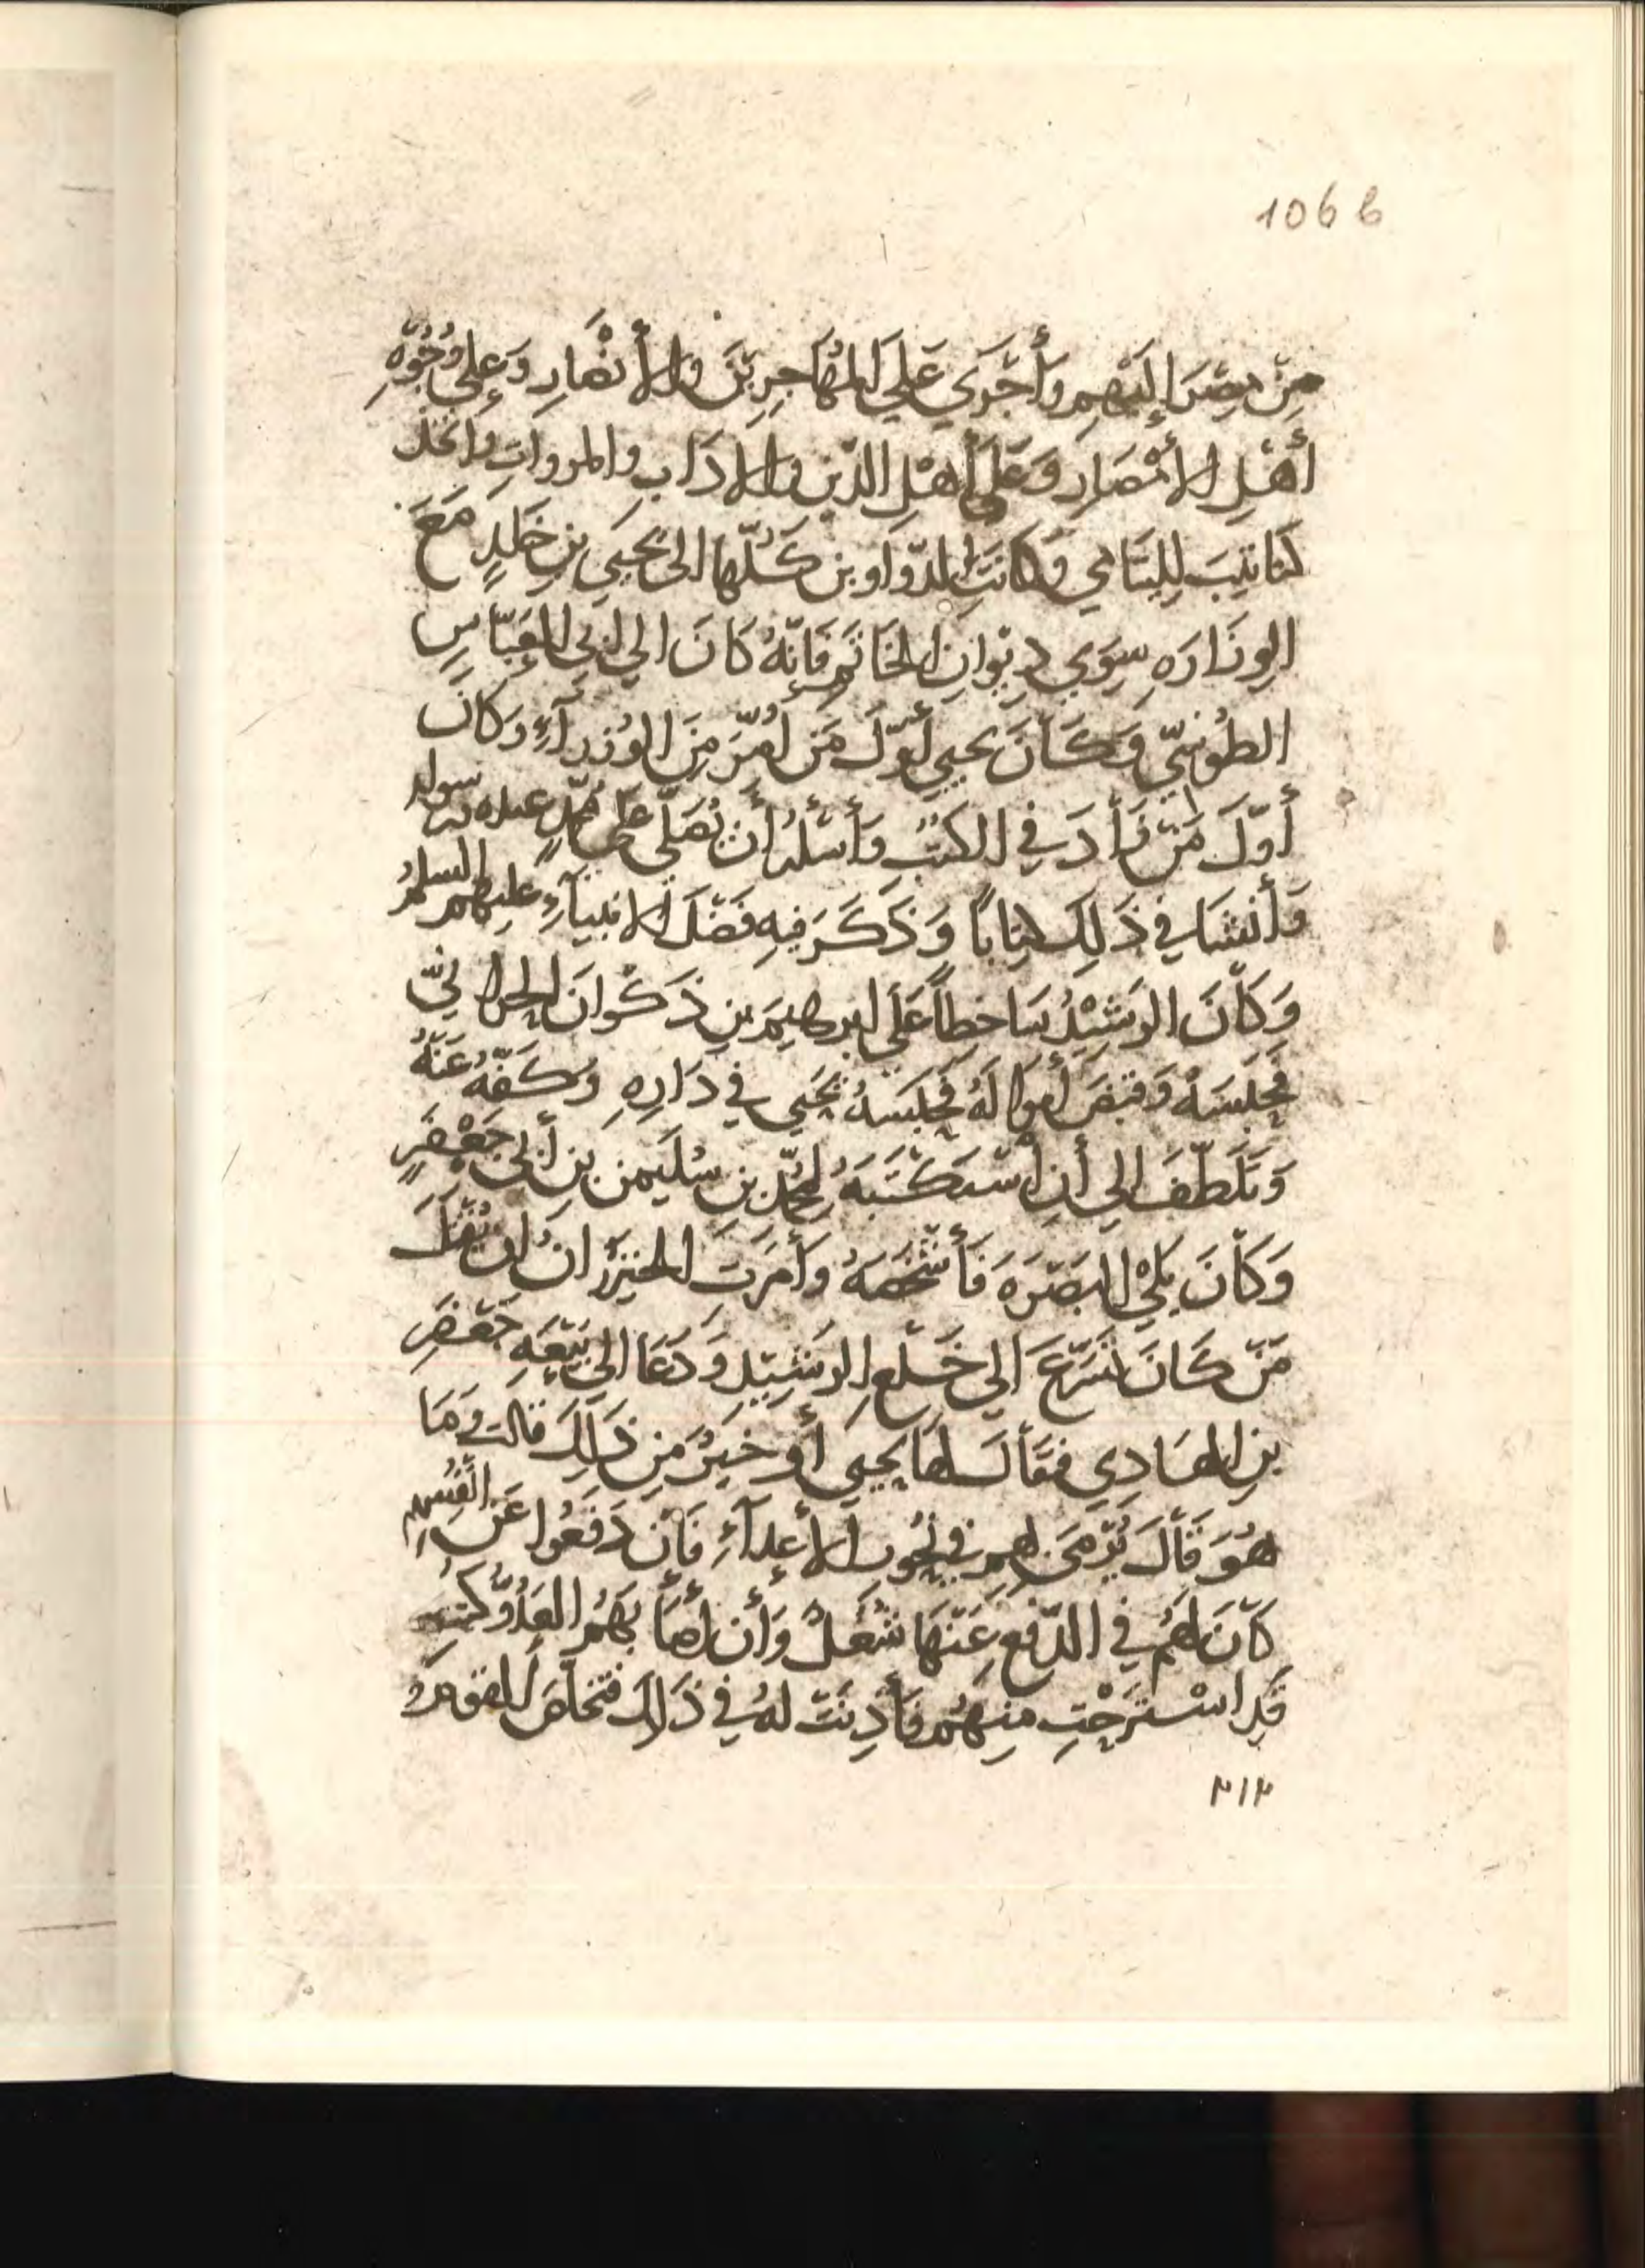 106 b
مِنْ مِصْرَ إِلَيْهِم وَأَجْرَي عَلَي المُهَاجِرِيْنَ وَالأَنْصَارِ وَعَلي وُجُوْهِ
أَهْلِ الأَمْصَارِ وَعَلَى أَهْلِ الدّينِ وَالادَابِ والمروات واتخذ
كتَاتِيبَ لِليَتَامي وَكَانَتِ الدّوَاوينِ كُلّهَا الى يَحيَي بن خَلِدٍ مَعَ
الوِزَارَهِ سِوَي دِيْوانِ الخَاتَمِ فَاِنّهُ كَانَ الي ابي العَبّاسِ
الطُوْسِيّ وَكَانَ يحيي أَوّلَ مَن أُمِّرَ مِنَ الوُزَرآءِ وَكَانَ
أَوّلَ مَنْ زَأدَ في الكتُبِ وَأَسْئلهُ أن يُصَلّي عَلي محمّدٍ عبده ورسوله
وَأَنشَا في ذَلِكَ كِتَاباً وَذَكَرَ فيهِ فَضْلَ الانبيآءِ عليهم السلمُ
وَكَانَ الرشِيْدُ سَاخِطاً عَلَي ابرهيمَ بنِ ذَكْوانَ الحرانيّ
فحَبَسَهُ وَقبَضَ أموالَهُ فحَبَسَهُ يَحْيَي في دَارِهِ وَكَفّهُ عَنْهُ
وَتَلَطّفَ الي أَنِ اسْتَكْتَبَهُ لمحَمّدِ بنِ سُلَيمن بنِ أبي جَعْفرٍ
وَكَانَ يَلي البَصْرَهَ فَأَشْخَصَهُ وَأَمَرَتِ الخَيزُرَانُ ان يُقتَلَ
مَنْ كَانَ تسَرّعَ الي خَلْعِ الرشِيْدِ وَدَعَا الي بَيْعَهِ جَعْفَرِ
بنِ الهَادِي فقَالَ لهَا يحيي أَو خَيرٌ مِن ذَلِكَ قالت وَمَا
هُوَ قَالَ يُرْمَى بهم في نحُورِ الأعدآءِ فَأن دَفَعُوا عَن انْفُسِهِم
كَانَ لهُم في الدّفعِ عَنْهَا شُغلٌ وَأن أصَابَهُم العَدُوُّ كنتِ
قَدِ اسْتَرَحْتِ مِنهُم فَأَذِنَتْ لهُ في ذَلِكَ فتخلّصَ القومُ
٢١٢